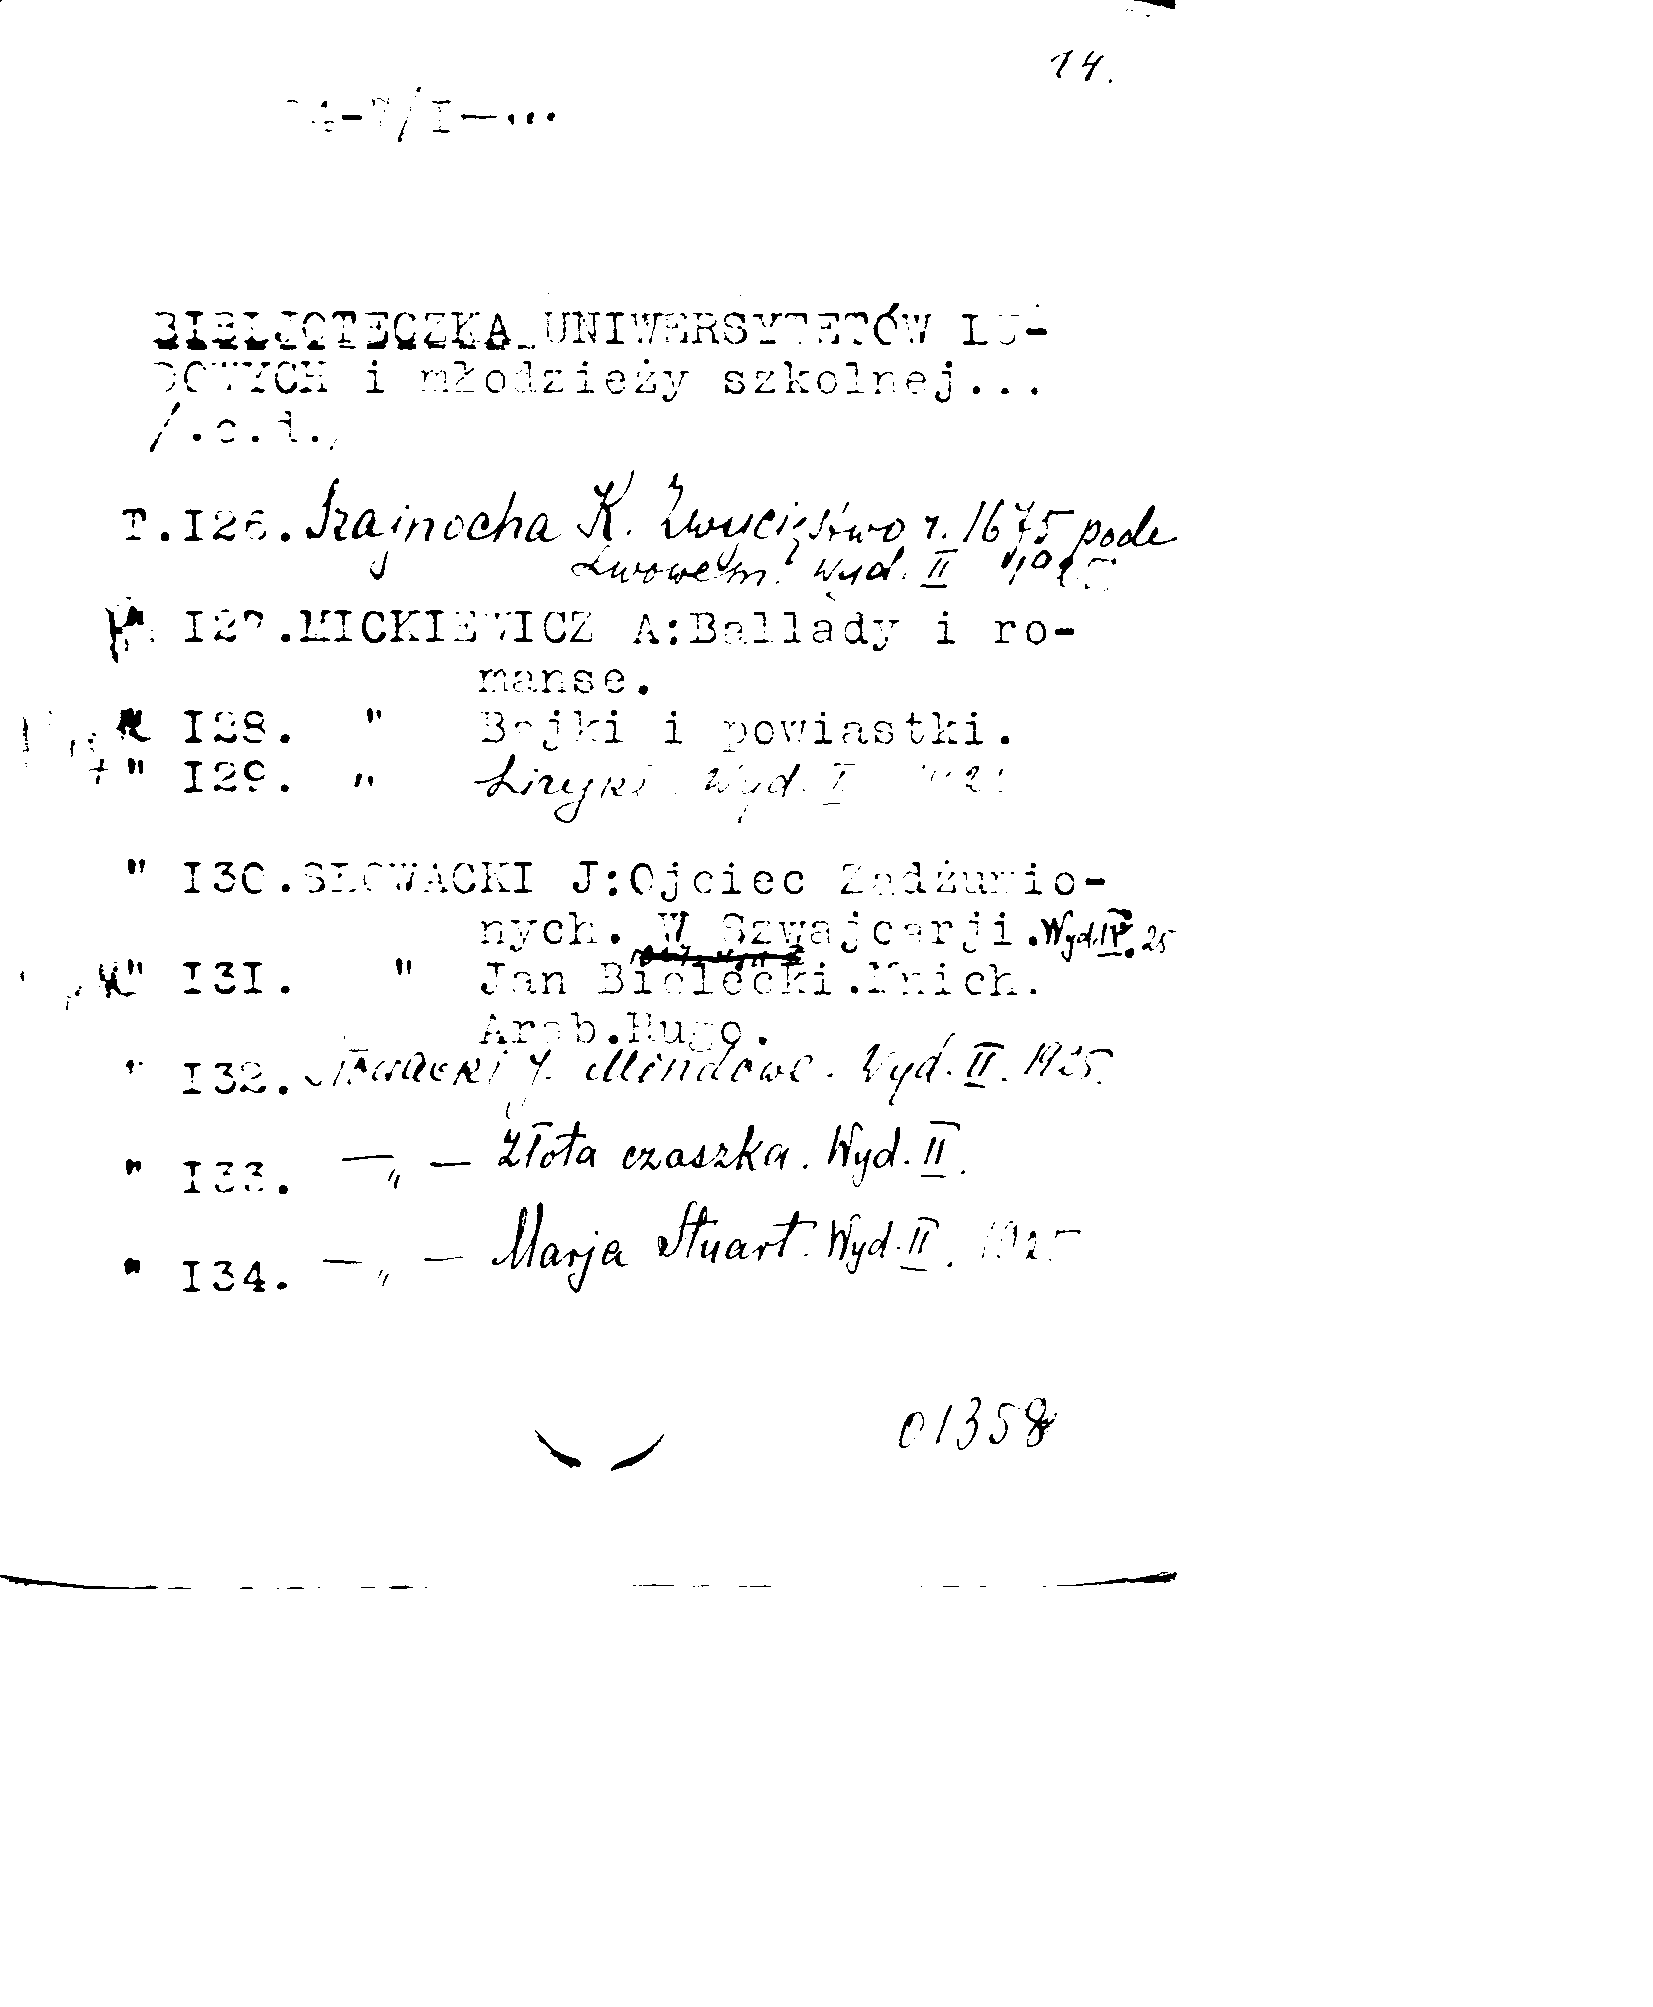 14.
4-7/I—...
BIBLIOTECZKA UNIWERSYTETÓW LU-
DOWYCH i młodzieży szkolnej...
/.c.d./
T.I26. Szajnocha K. Zwycięstwo r. 1675 pode
Lwowem. Wyd. II
I27.MICKIEWICZ A:Ballady i ro-
manse.
I28. " Bajki i powiastki.
" I29. " Liryki. Wyd. I
" I30.SŁOWACKI J:Ojciec Zadżumio-
nych. W Szwajcarji. Wyd. IV. 25
" I3I. " Jan Bielecki.Mnich.
Arab.Hugo.
" I32. Słowacki J. Mindowe. Wyd. II. 1925.
" I33. —„— Złota czaszka. Wyd. II.
" I34. —„— Marja Stuart. Wyd. II. 1925
01358